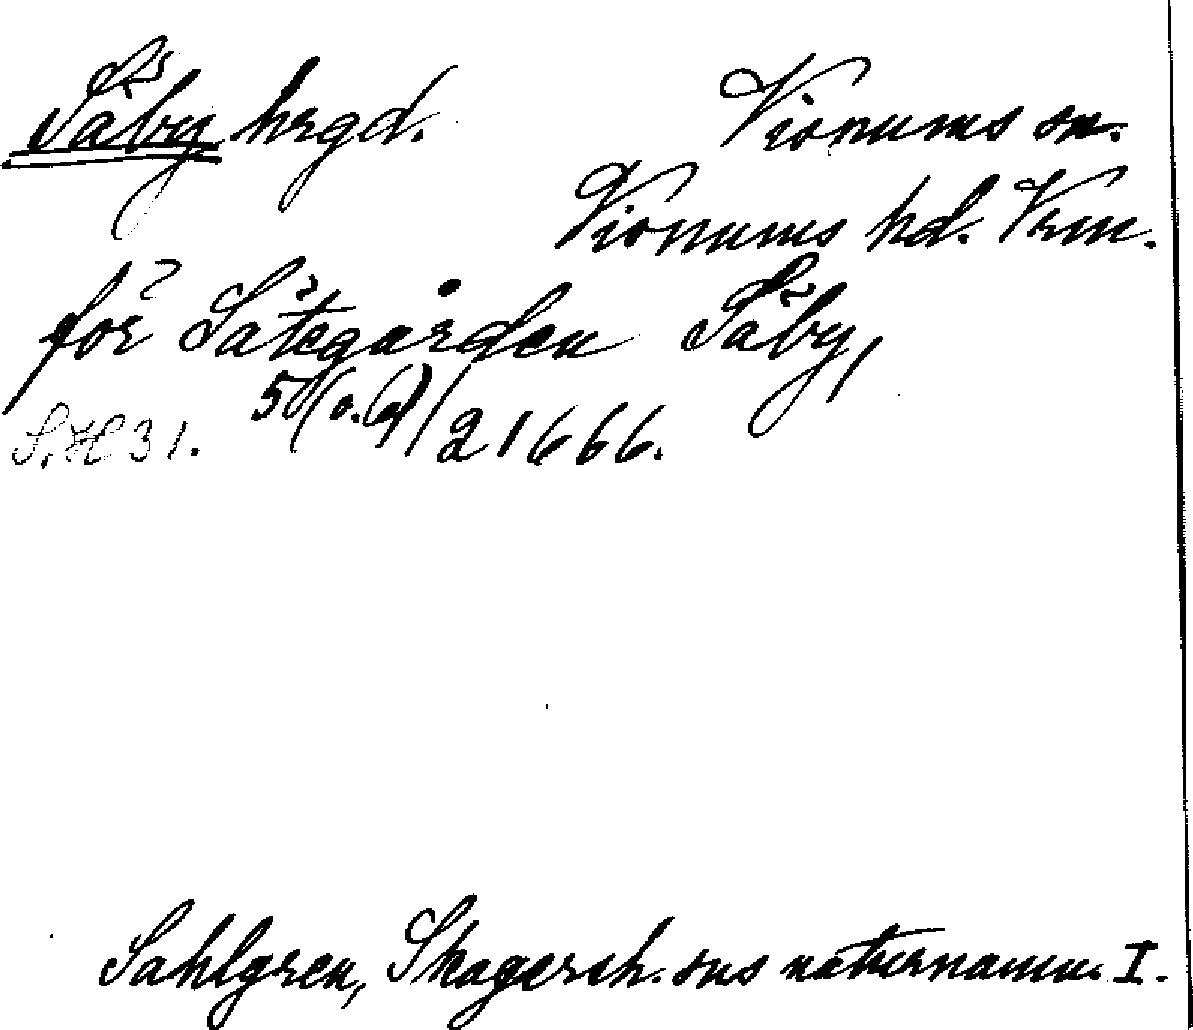 Säby hrgd. Visnums sn.
Visnums hd. Vrm.
för Sätegården Säby,
S.H 31. 50(o.a)/2 1666.
Sahlgren, Skagersh. sns naturnamn I.